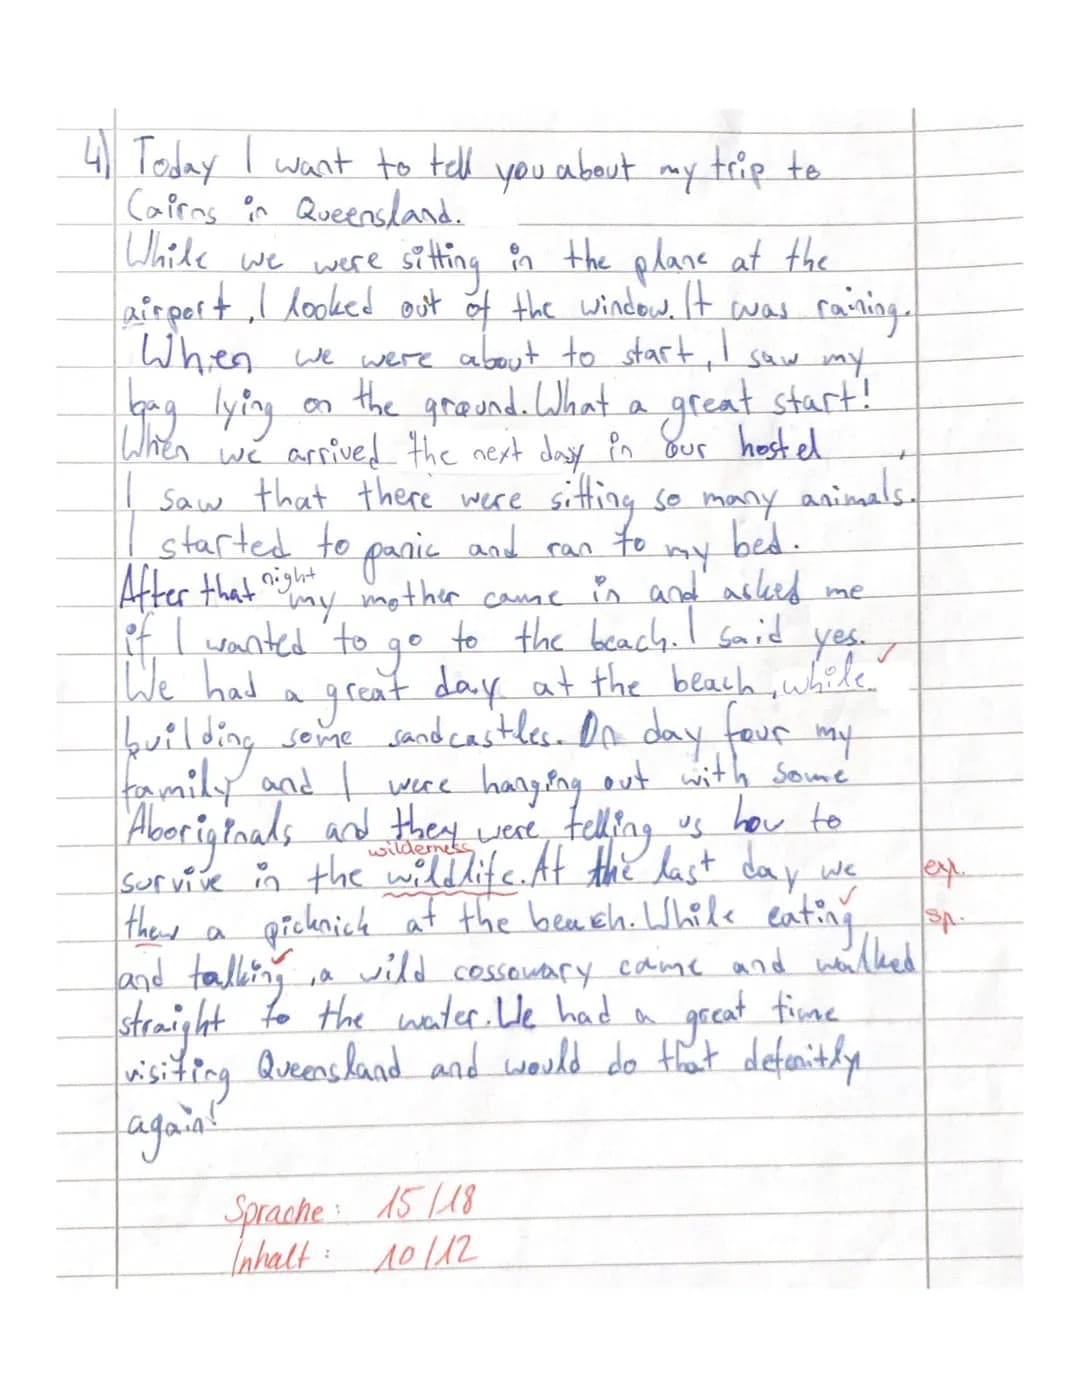 4) Today I want to tell you about my trip to
Cairns in Queensland.
While we were sitting in the plane at the
airport, I looked out of the window. It was raining.
When we were about to start, I saw my
bag lying on the ground. What a great start!
When we arrived the next day in our hostel,
I saw that there were sitting so many animals.
I started to panic and ran to my bed.
After that night my mother came in and asked me
if I wanted to go to the beach. I said yes.
We had a great day at the beach, while
building some sandcastles. On day four my
family and I were hanging out with some
Aboriginals and they were telling us how to
wilderness
survive in the wildlife. At the last day we exp.
thew a picknick at the beach. While eating sp.
and talking, a wild cossowary came and walked
straight to the water. We had a great time
visiting Queensland and would do that defenitly
again!
Sprache: 15/18
Inhalt: 10/12